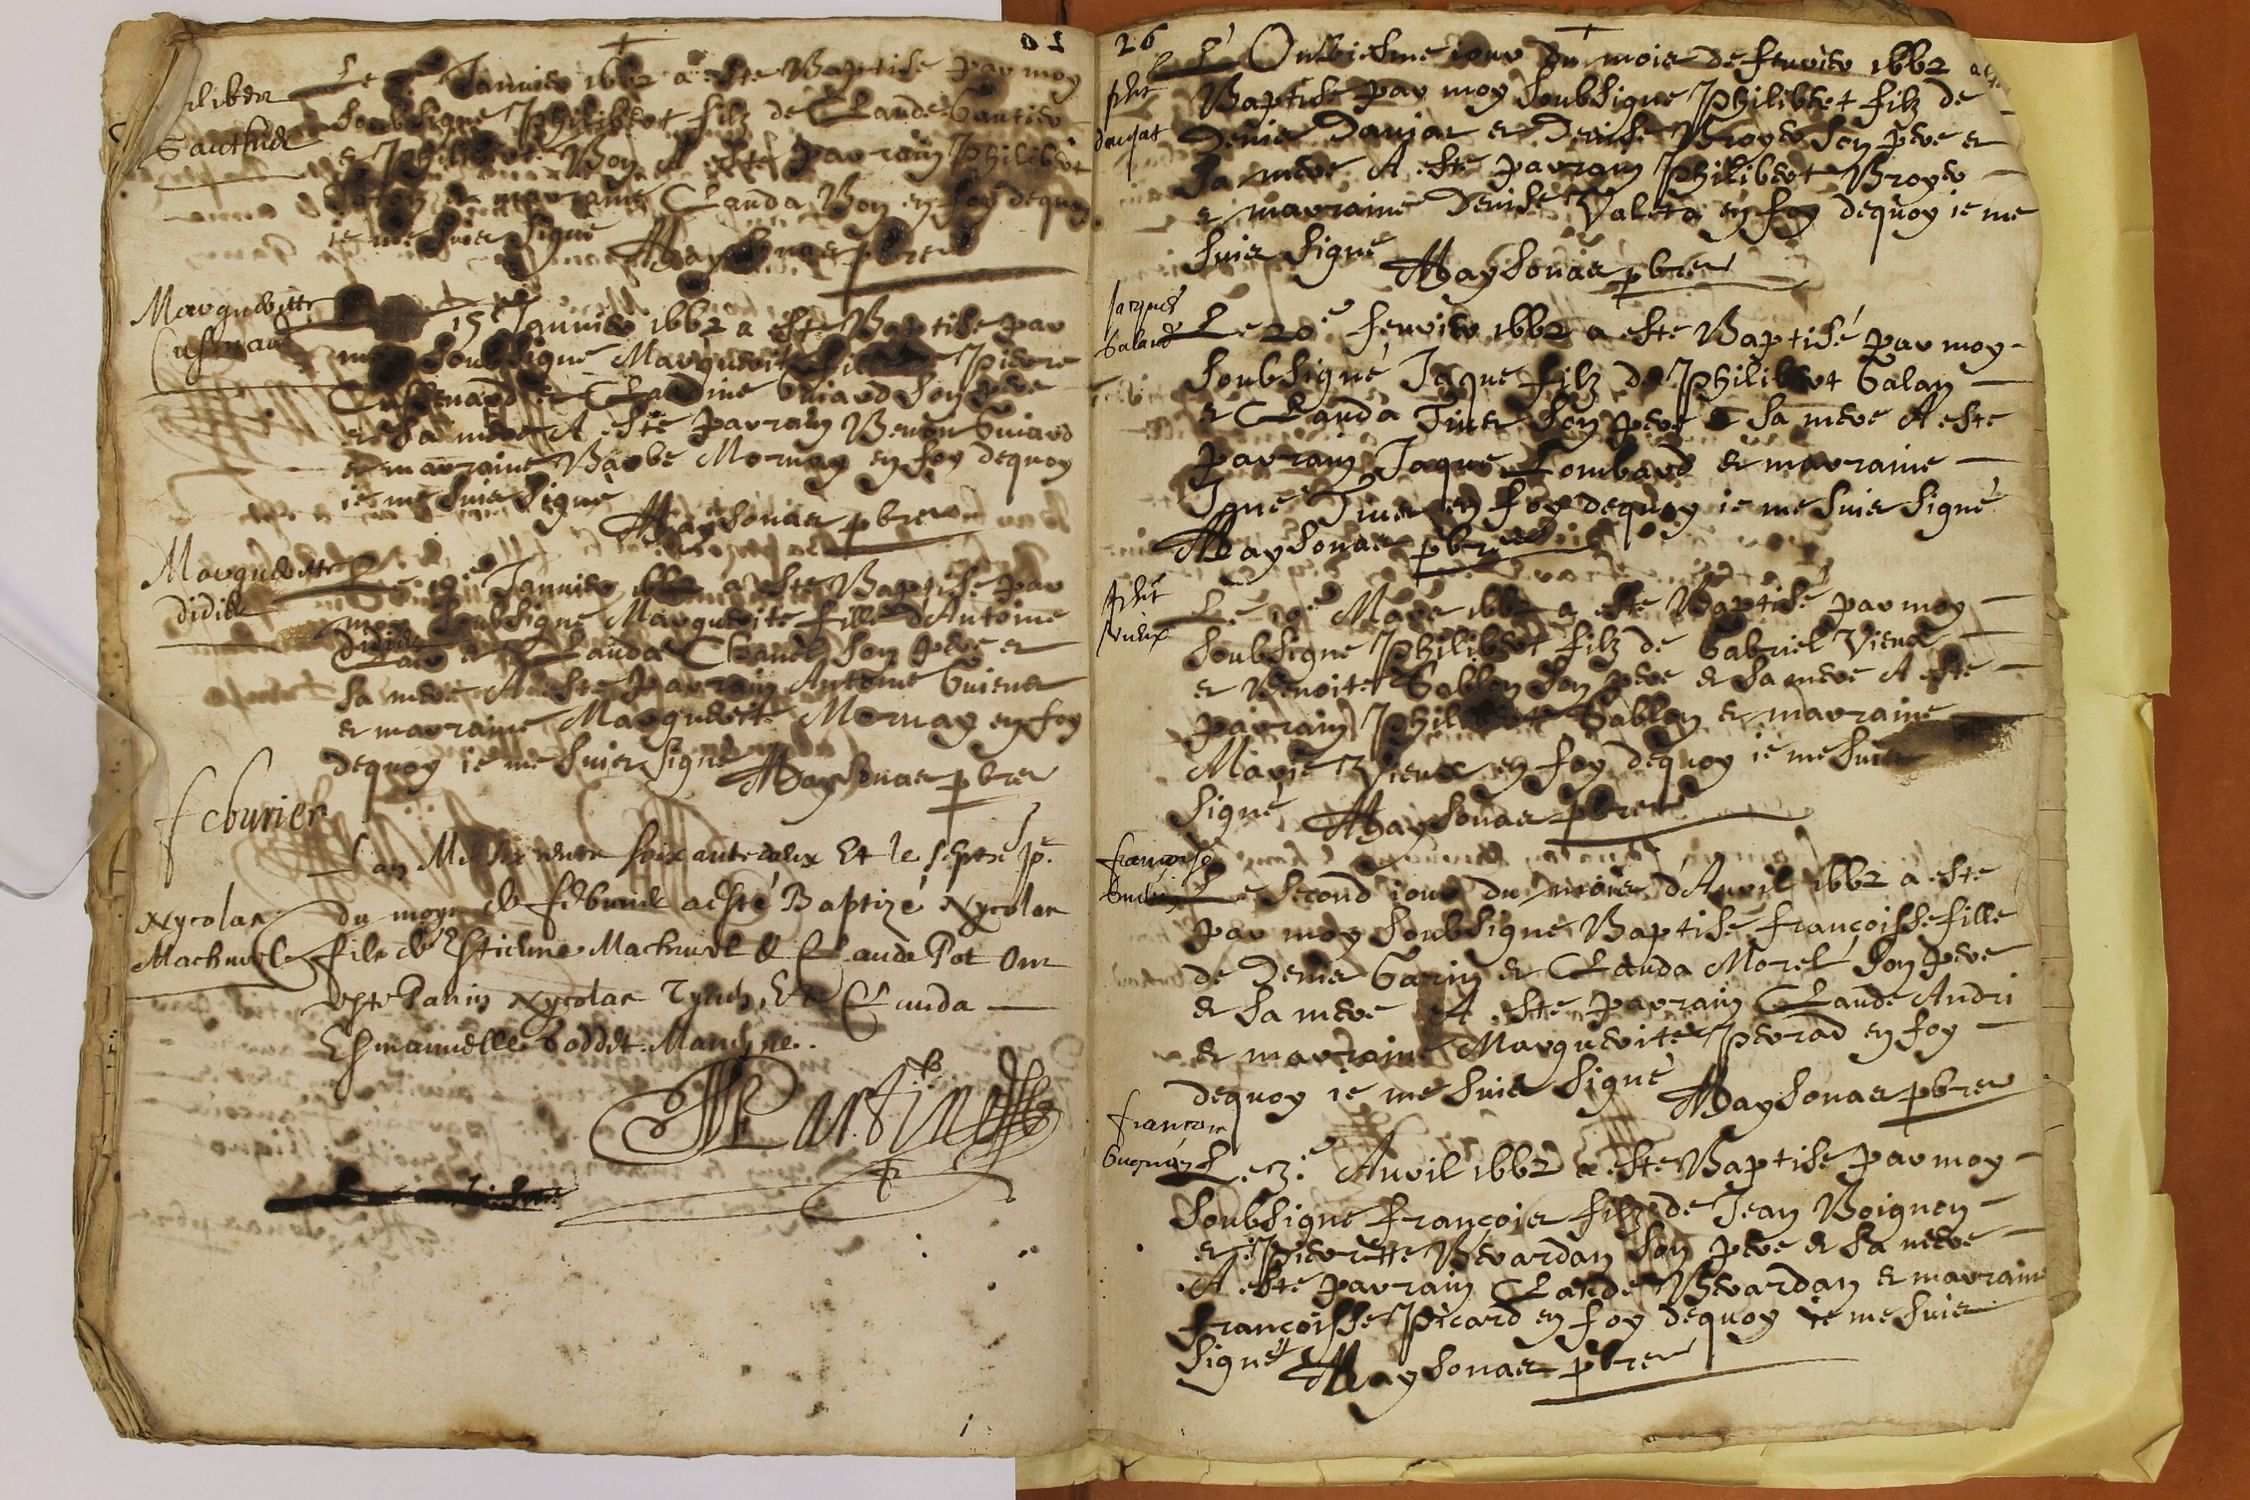 Gauthier
Le Januier 1662 a este Baptise par moy
soubsigne Philibert filz de Claude Gautier
et Philiberte Bon A este parrain Philibert
et marraine Clauda Bon en foy dequoy
ie me suis signe Maysonas pbre
Margueritte
Cussenard
15e Januier 1662 a este Baptise par
moy soubsigne Marguerite fille Pierre
Cussenard et Claudine Guiard son pere
et sa mere A este parrain Benoit Guiard
et marraine Barbe Mornay en foy dequoy
ie me suis signe Maysonas pbre
Margueritte
didier
Le 19e Januier 1662 a este Baptise par
moy soubsigne Marguerite fille d'Antoine
Didier et Clauda Chanel son pere et
sa mere A este parrain Antoine Guienet
et marraine Marguerite Mornay en foy
dequoy ie me suis signe Maysonas pbre
feburier
Nycolas
Machurel
Lan Mil six cents soixante deux Et le septe Jr.
du moys de feburier a esté Baptizé Nycolas
filz d'Estienne Machurel & Clauda Pot Ont
esté Parin Nycolas Et Clauda
Esmanuelle Goddet Maraine.
26
phit
danjat
L' Onziesme iour du mois de feurier 1662 a este
Baptise par moy soubsigne Philibert filz de
Denis Danjat et Denise Broyer son pere et
sa mere A este parrain Philibert Broyer
et marraine Denise Valeta en foy dequoy ie me
suis signe Maysonas pbre
Jacques
Galand
Le 20e feurier 1662 a este Baptisé par moy
soubsigné Jaque filz de Philibert Galan
et Clauda Tiuet son pere et sa mere A este
parrain Jaque Lombard et marraine
Tiuet en foy dequoy ie me suis signé
Maysonas pbre
Phit
vieux
Le 10e Mars 1662 a este Baptisé par moy
soubsigne Philibert filz de Gabriel Vieux
et Benoite Gablon son pere et sa mere A este
parrain Philibert Gablon et marraine
Marie Vieux en foy dequoy ie me suis
signé Maysonas pbre
françoise
Le second iour du mois d'Auril 1662 a este
par moy soubsigne Baptisé françoisse fille
de Denis Garin et Clauda Morel son pere
et sa mere A este parrain Claude Andri
et marraine Marguerite Perrad en foy
dequoy ie me suis signé Maysonas pbre
françois
Le 3e Auril 1662 a este Baptise par moy
soubsigne françois filz de Jean Boignon
et Pierrette Berardan son pere et sa mere
A este parrain Claude Berardan et marraine
françoisse Picard en foy dequoy ie me suis
signé Maysonas pbre